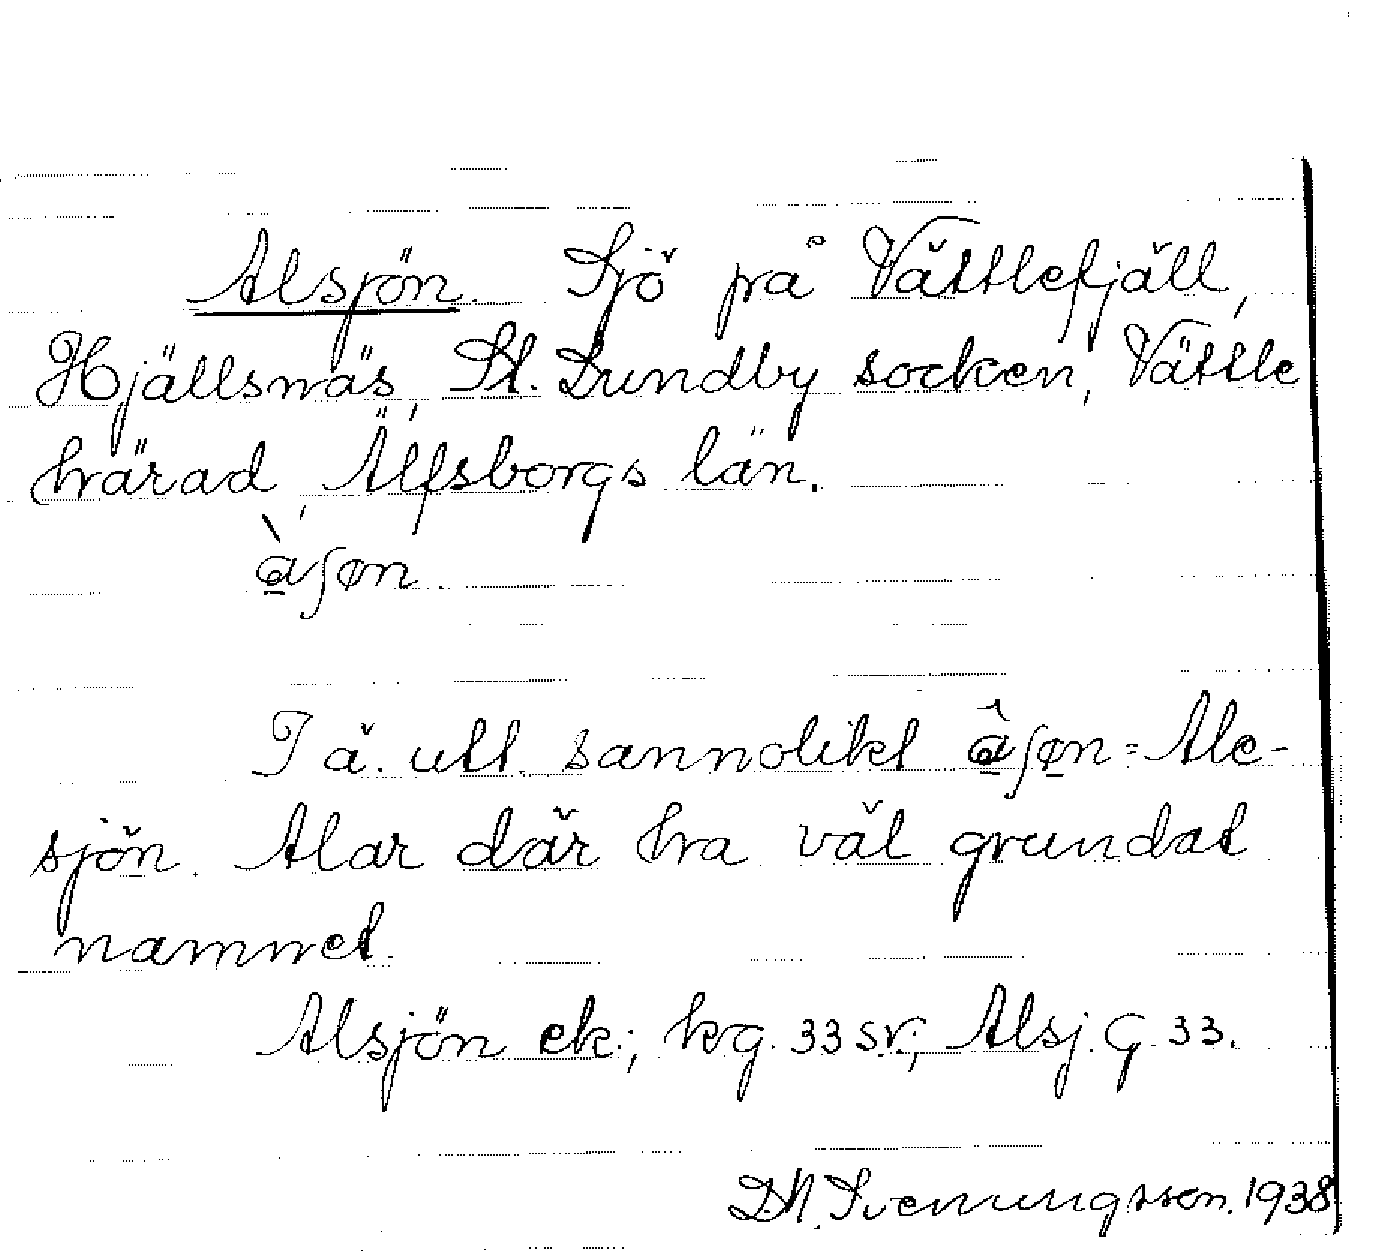 Alsjön. Sjö på Vättlefjäll,
Hjällsnäs, St. Lundby socken, Vättle
härad, Älfsborgs län.
àʃøn.
I ä. utt. sannolikt âʃøn = Ale-
sjön. Alar där ha väl grundat
namnet.
Alsjön ek.; kg. 33 sv; Alsj. G 33.
Svenungsson. 1938